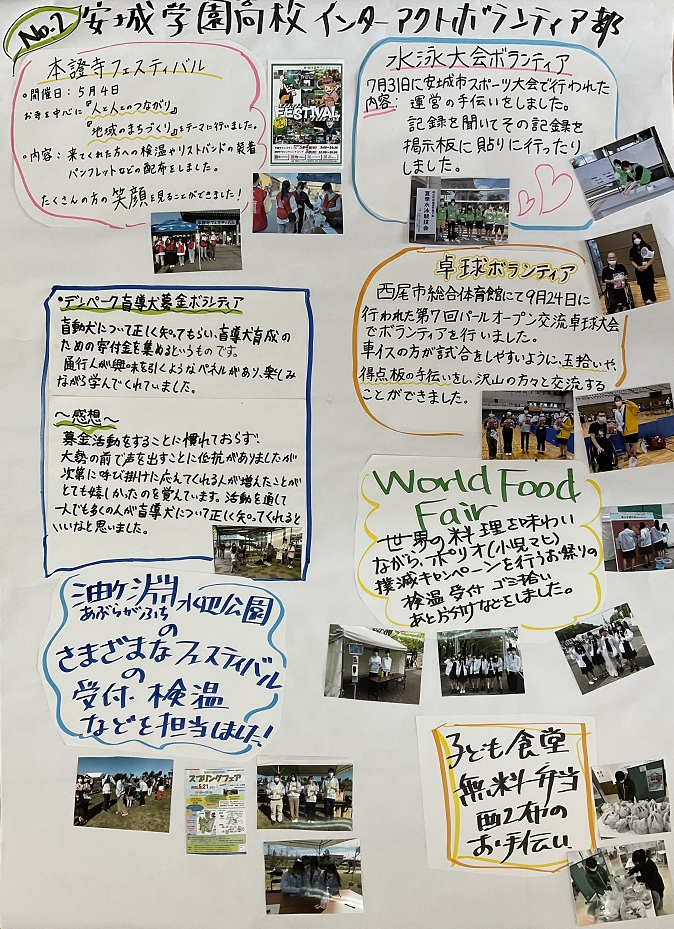 No.2 安城学園高校 インターアクトボランティア部
本證寺フェスティバル
・開催日：5月4日
お寺を中心に『人と人とのつながり』
『地域のまちづくり』をテーマに行いました。
・内容：来てくれた方への検温やリストバンドの装着
パンフレットなどの配布をしました。
たくさんの方の笑顔を見ることができました！
FESTIVAL
水泳大会ボランティア
7月31日に安城市スポーツ大会で行われた
内容：運営の手伝いをしました。
記録を聞いてその記録を
掲示板に貼りに行ったり
しました。
夏季水泳競技会
卓球ボランティア
西尾市総合体育館にて9月24日に
行われた第7回パールオープン交流卓球大会
でボランティアを行いました。
車イスの方が試合をしやすいように、玉拾いや、
得点板の手伝いをし、沢山の方々と交流する
ことができました。
・デンパーク盲導犬募金ボランティア
盲動犬について正しく知ってもらい、盲導犬育成の
ための寄付金を集めるというものです。
通行人が興味を引くようなパネルがあり、楽しみ
ながら学んでくれていました。
〜感想〜
募金活動をすることに慣れておらず、
大勢の前で声を出すことに低抗がありましたが
次第に呼び掛けに応えてくれる人が増えたことが
とても嬉しかったのを覚えています。活動を通して
一人でも多くの人が盲導犬について正しく知ってくれると
いいなと思いました。
World Food
Fair
世界の料理を味わい
ながら、ポリオ(小児マヒ)
撲滅キャンペーンを行うお祭りの
検温 受付 ゴミ拾い
あと片付けなどをしました。
油ヶ淵水辺公園
あぶらがふち
の
さまざまなフェスティバル
の
受付・検温
などを担当しました！
スプリングフェア
5.21
子ども食堂
無料弁当
配布の
お手伝い